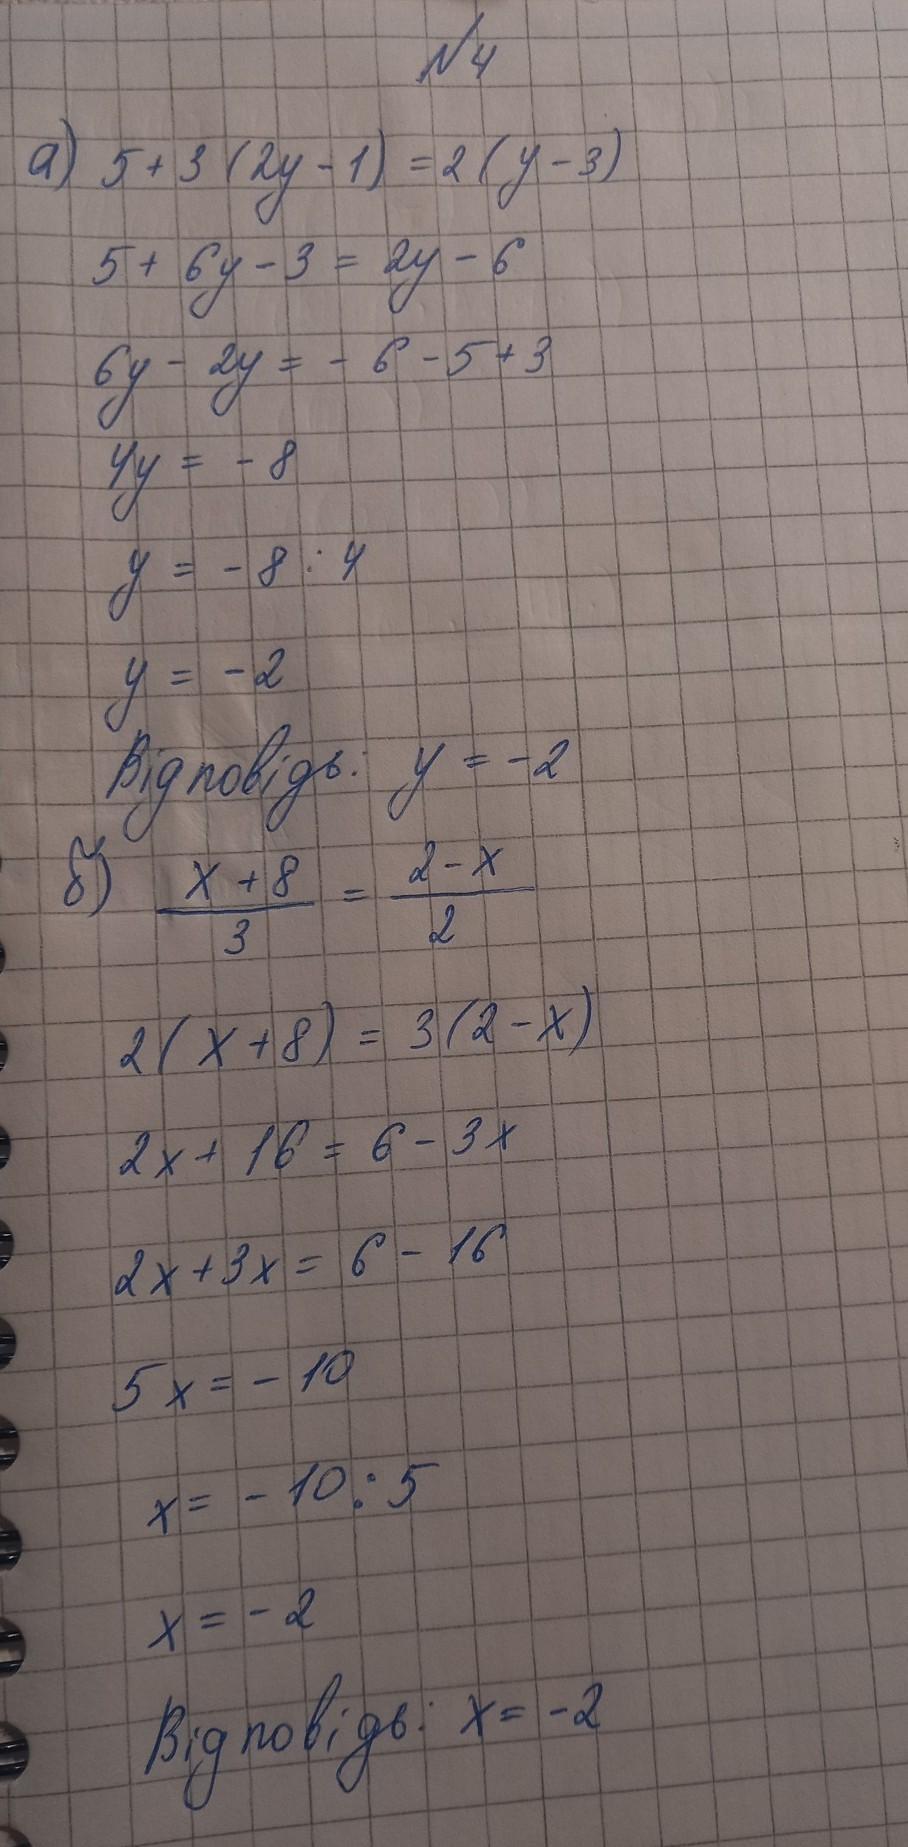 №4
а) 5 + 3 (2y - 1) = 2 (y - 3)
5 + 6y - 3 = 2y - 6
6y - 2y = - 6 - 5 + 3
4y = - 8
y = - 8 : 4
y = - 2
Відповідь: y = - 2
б) (x + 8)/3 = (2 - x)/2
2 (x + 8) = 3 (2 - x)
2x + 16 = 6 - 3x
2x + 3x = 6 - 16
5x = - 10
x = - 10 : 5
x = - 2
Відповідь: x = - 2